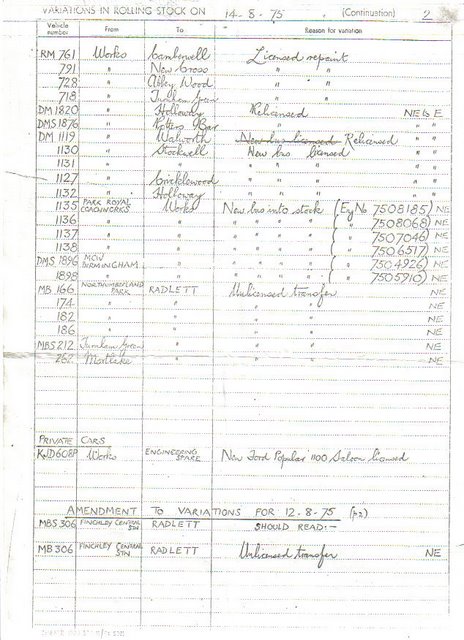 VARIATIONS IN ROLLING STOCK ON 14-8-75 (Continuation) 2
Vehicle number From To Reason for variation
RM 761 Works Camberwell Licensed repaint
791 " New Cross " "
728 " Abbey Wood " "
718 " Turnham Green " "
DM 1820 " Holloway Relicensed NE to E
DMS 1876 " Potters Bar " " "
DM 1119 " Walworth New bus licensed Relicensed " "
1130 " Stockwell New bus licensed
1131 " " " " "
1127 " Cricklewood " " "
1132 " Holloway " " "
1135 PARK ROYAL COACHWORKS Works New bus into stock (Eng No 7508185) NE
1136 " " " " " " ( " 7508068) NE
1137 " " " " " " ( " 7507046) NE
1138 " " " " " " ( " 7506517) NE
DMS 1896 MCW BIRMINGHAM " " " " " ( " 7504926) NE
1898 " " " " " " ( " 7505910) NE
MB 166 NORTHUMBERLAND PARK RADLETT Unlicensed transfer NE
174 " " " " NE
182 " " " " NE
186 " " " " NE
MBS 212 Turnham Green " " " NE
262 Mortlake " " " NE
PRIVATE CARS
608P Works ENGINEERING SPARE New Ford Popular 1100 Saloon licensed
AMENDMENT TO VARIATIONS FOR 12-8-75 (p2)
MBS 306 FINCHLEY CENTRAL STN RADLETT SHOULD READ:-
MB 306 FINCHLEY CENTRAL STN RADLETT Unlicensed transfer NE